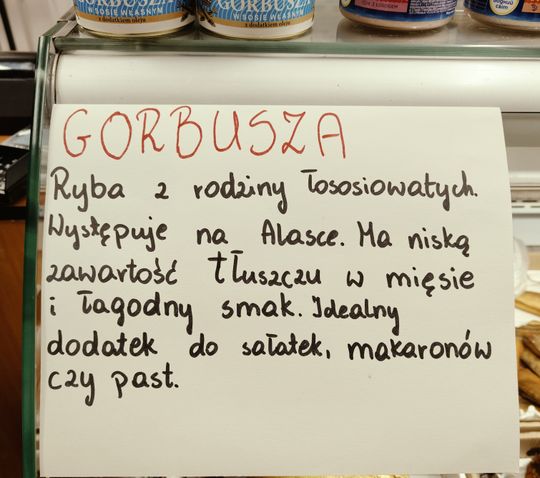 GORBUSZA
W SOSIE WŁASNYM
z dodatkiem oleju
GORBUSZA
W SOSIE WŁASNYM
z dodatkiem oleju
GORBUSZA
Ryba z rodziny łososiowatych.
Występuje na Alasce. Ma niską
zawartość tłuszczu w mięsie
i łagodny smak. Idealny
dodatek do sałatek, makaronów
czy past.